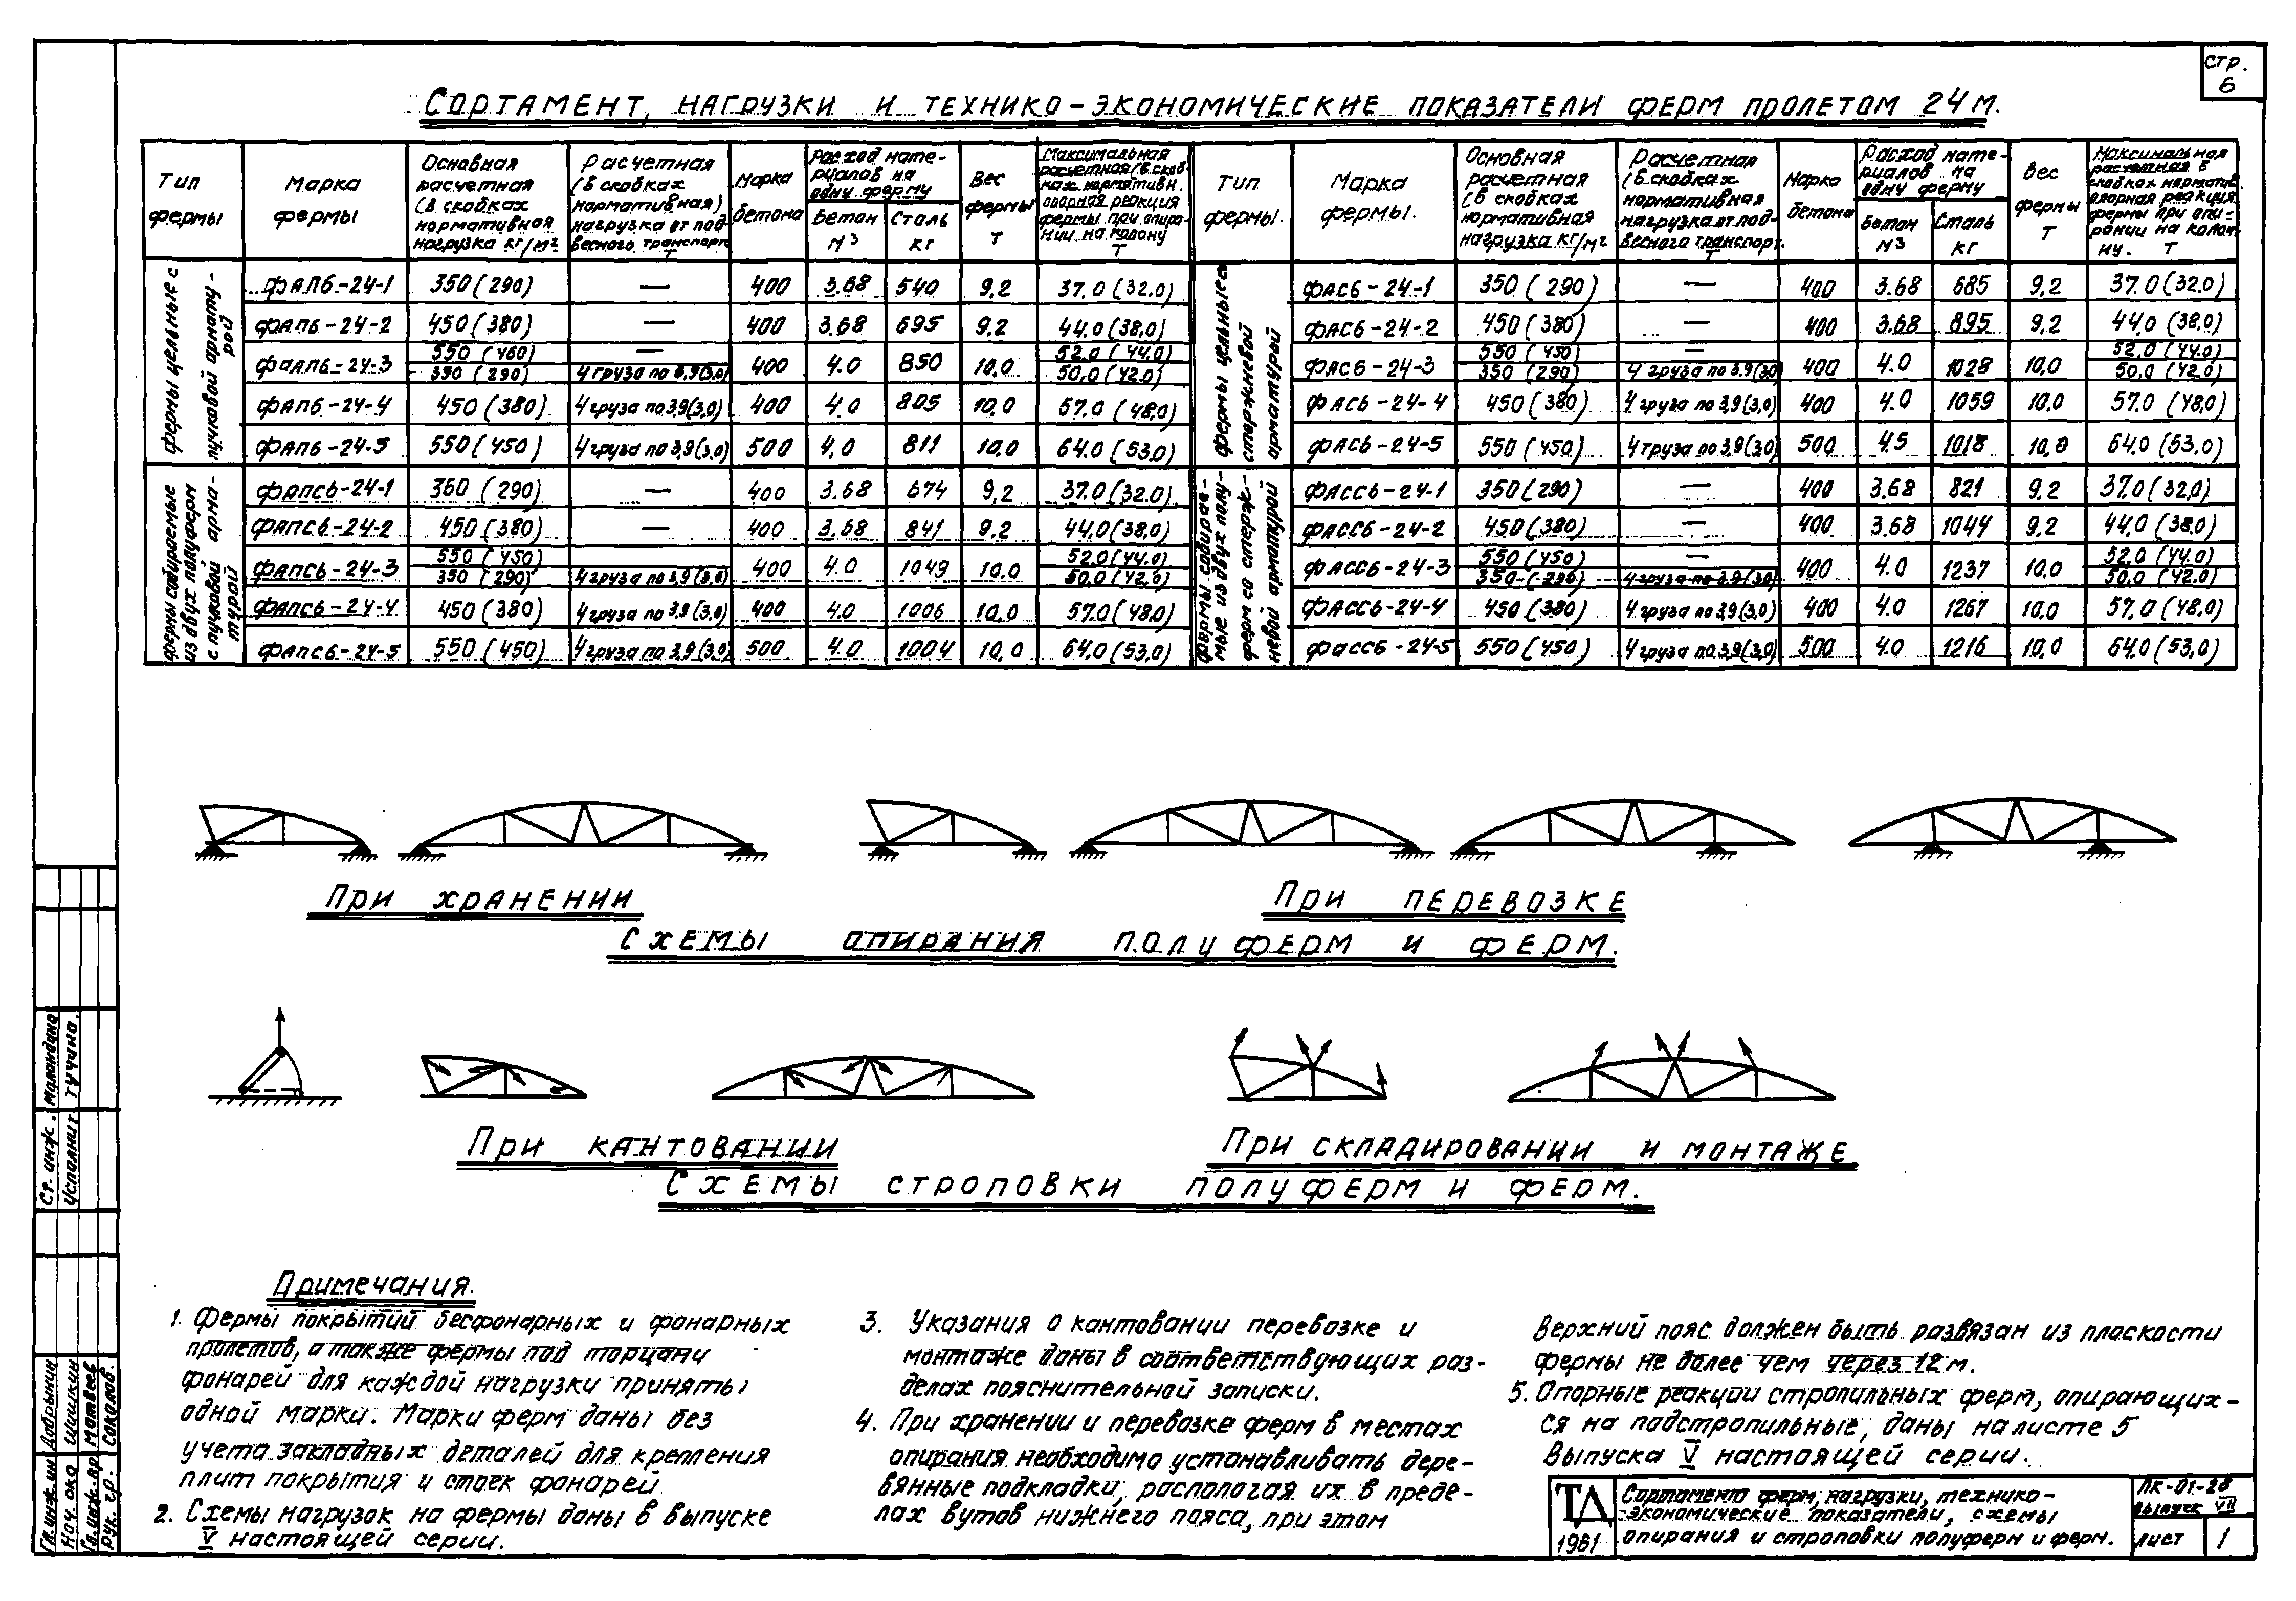 стр.
6
Сортамент, нагрузки и технико-экономические показатели ферм пролетом 24 м.
Тип фермы
Марка фермы
Основная расчетная (в скобках нормативная нагрузка кг/м²
Расчетная (в скобках нормативная) нагрузка от подвесного транспорт. Т
Марка бетона
Расход материалов на одну ферму
Бетон м³
Сталь кг
Вес фермы Т
Максимальная расчетная (в скобках нормативн. опорная реакция фермы при опирании на колону Т
Фермы цельные с пучковой арматурой
ФАПб-24-1 350(290) — 400 3.68 540 9,2 37.0(32.0)
ФАПб-24-2 450(380) — 400 3.68 695 9.2 44.0(38,0)
ФАПб-24-3 550 (460) — 400 4.0 850 10.0 52.0(44.0)
350 (290) 4 груза по 3,9(3,0) 50.0(42.0)
ФАПб-24-4 450(380) 4 груза по 3,9(3,0) 400 4.0 805 10.0 57.0 (48,0)
ФАПб-24-5 550(450) 4 груза по 3,9(3,0) 500 4,0 811 10.0 64.0(53,0)
Фермы собираемые из двух полуферм с пучковой арматурой
ФАПСб-24-1 350 (290) — 400 3.68 674 9,2 37.0(32.0)
ФАПСб-24-2 450(380) — 400 3.68 841 9.2 44,0(38,0)
ФАПСб-24-3 550(450) 400 4.0 1049 10.0 52.0(44.0)
350 (290) 4 груза по 3,9(3,0) 50,0(42,0)
ФАПСб-24-4 450(380) 4 груза по 3.9(3,0) 400 4.0 1006 10.0 57.0(48,0)
ФАПСб-24-5 550(450) 4 груза по 3,9(3,0) 500 4.0 1004 10,0 64,0(53,0)
Тип фермы.
Марка фермы.
Основная расчетная (в скобках нормативная нагрузка кг/м²
Расчетная (в скобках нормативная нагрузка от подвесного транспорт. Т
Марка бетона
Расход материалов на одну ферму
Бетон м³
Сталь кг
Вес фермы Т
Максимальная расчетная в скобках норматив. опорная реакция фермы при опирании на колонну. Т
Фермы цельные со стержневой арматурой
ФАСб-24-1 350(290) — 400 3.68 685 9,2 37.0(32.0)
ФАСб-24-2 450(380) — 400 3.68 895 9.2 44,0 (38,0)
ФАСб-24-3 550 (450) — 400 4.0 1028 10,0 52,0 (44,0)
350 (290) 4 груза по 3.9(3,0) 50,0 (42,0)
ФАСб-24-4 450(380) 4 груза по 3,9(3,0) 400 4.0 1059 10.0 57.0 (48,0)
ФАСб-24-5 550(450) 4 груза по 3,9(3,0) 500 4.5 1018 10,0 64.0 (53,0)
Фермы собираемые из двух полуферм со стержневой арматурой
ФАССб-24-1 350(290) — 400 3.68 821 9,2 37.0(32,0)
ФАССб-24-2 450(380) — 400 3.68 1044 9,2 44,0 (38.0)
ФАССб-24-3 550(450) — 400 4.0 1237 10,0 52,0 (44.0)
350 (290) 4 груза по 3.9(3.0) 50,0 (42.0)
ФАССб-24-4 450 (380) 4 груза по 3,9(3,0) 400 4.0 1267 10.0 57,0(48,0)
ФАССб-24-5 550(450) 4 груза по 3,9(3,0) 500 4.0 1216 10.0 64,0(53,0)
При хранении
При перевозке
Схемы опирания полуферм и ферм.
При кантовании
При складировании и монтаже
Схемы строповки полуферм и ферм.
Примечания.
1. Фермы покрытий бесфонарных и фонарных
пролетов, а также фермы под торцами
фонарей для каждой нагрузки приняты
одной марки. Марки ферм даны без
учета закладных деталей для крепления
плит покрытия и стоек фонарей.
2. Схемы нагрузок на фермы даны в выпуске
V настоящей серии.
3. Указания о кантовании перевозке и
монтаже даны в соответствующих раз-
делах пояснительной записки.
4. При хранении и перевозке ферм в местах
опирания необходимо устанавливать дере-
вянные подкладки, распологая их в преде-
лах вутов нижнего пояса, при этом
Верхний пояс должен быть развязан из плоскости
фермы не более чем через 12 м.
5. Опорные реакции стропильных ферм, опирающих-
ся на подстропильные, даны на листе 5
Выпуска V настоящей серии.
ТД
1961
Сортаменто ферм, нагрузки, технико-
-экономические показатели, схемы
опирания и строповки полуферм и ферм.
ПК-01-28
выпуск VII
лист 1
Ст. инж. Маландина
Исполнит Тучина
Гл. инж. ин Добрынин
Нач. ско Шишкин
Гл. инж. пр Матвеев
Рук. гр. Соколов